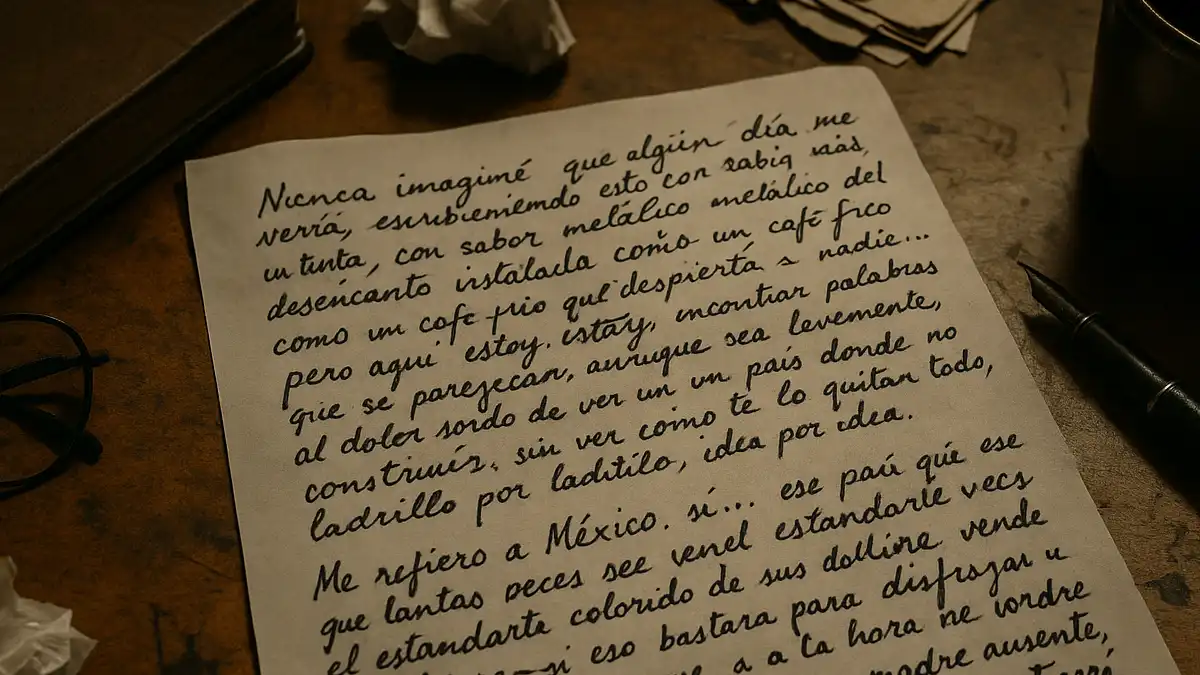 Nunca imaginé que algún día me
verrá, escribeniendo esto con sabia más,
un tinta, con sabor metálico metálico del
desencanto instalada como un café frco
como un cofe frio que despierta a nadie...
pero aqui estoy. istay, incontrar palabras
que se parejecan, aunuque sea levemente,
al doler sordo de ver un un país donde no
construiés, sin ver como te lo quitan todo,
ladrillo por laditilo, idea por idea.
Me refiero a México. sí... ese país qué ese
que lantas peces see venel estandarle vecs
el estandarta colorido de sus dolline vende
si eso bastara para disfrazar u
a a la hora ne vordre
madre ausente,